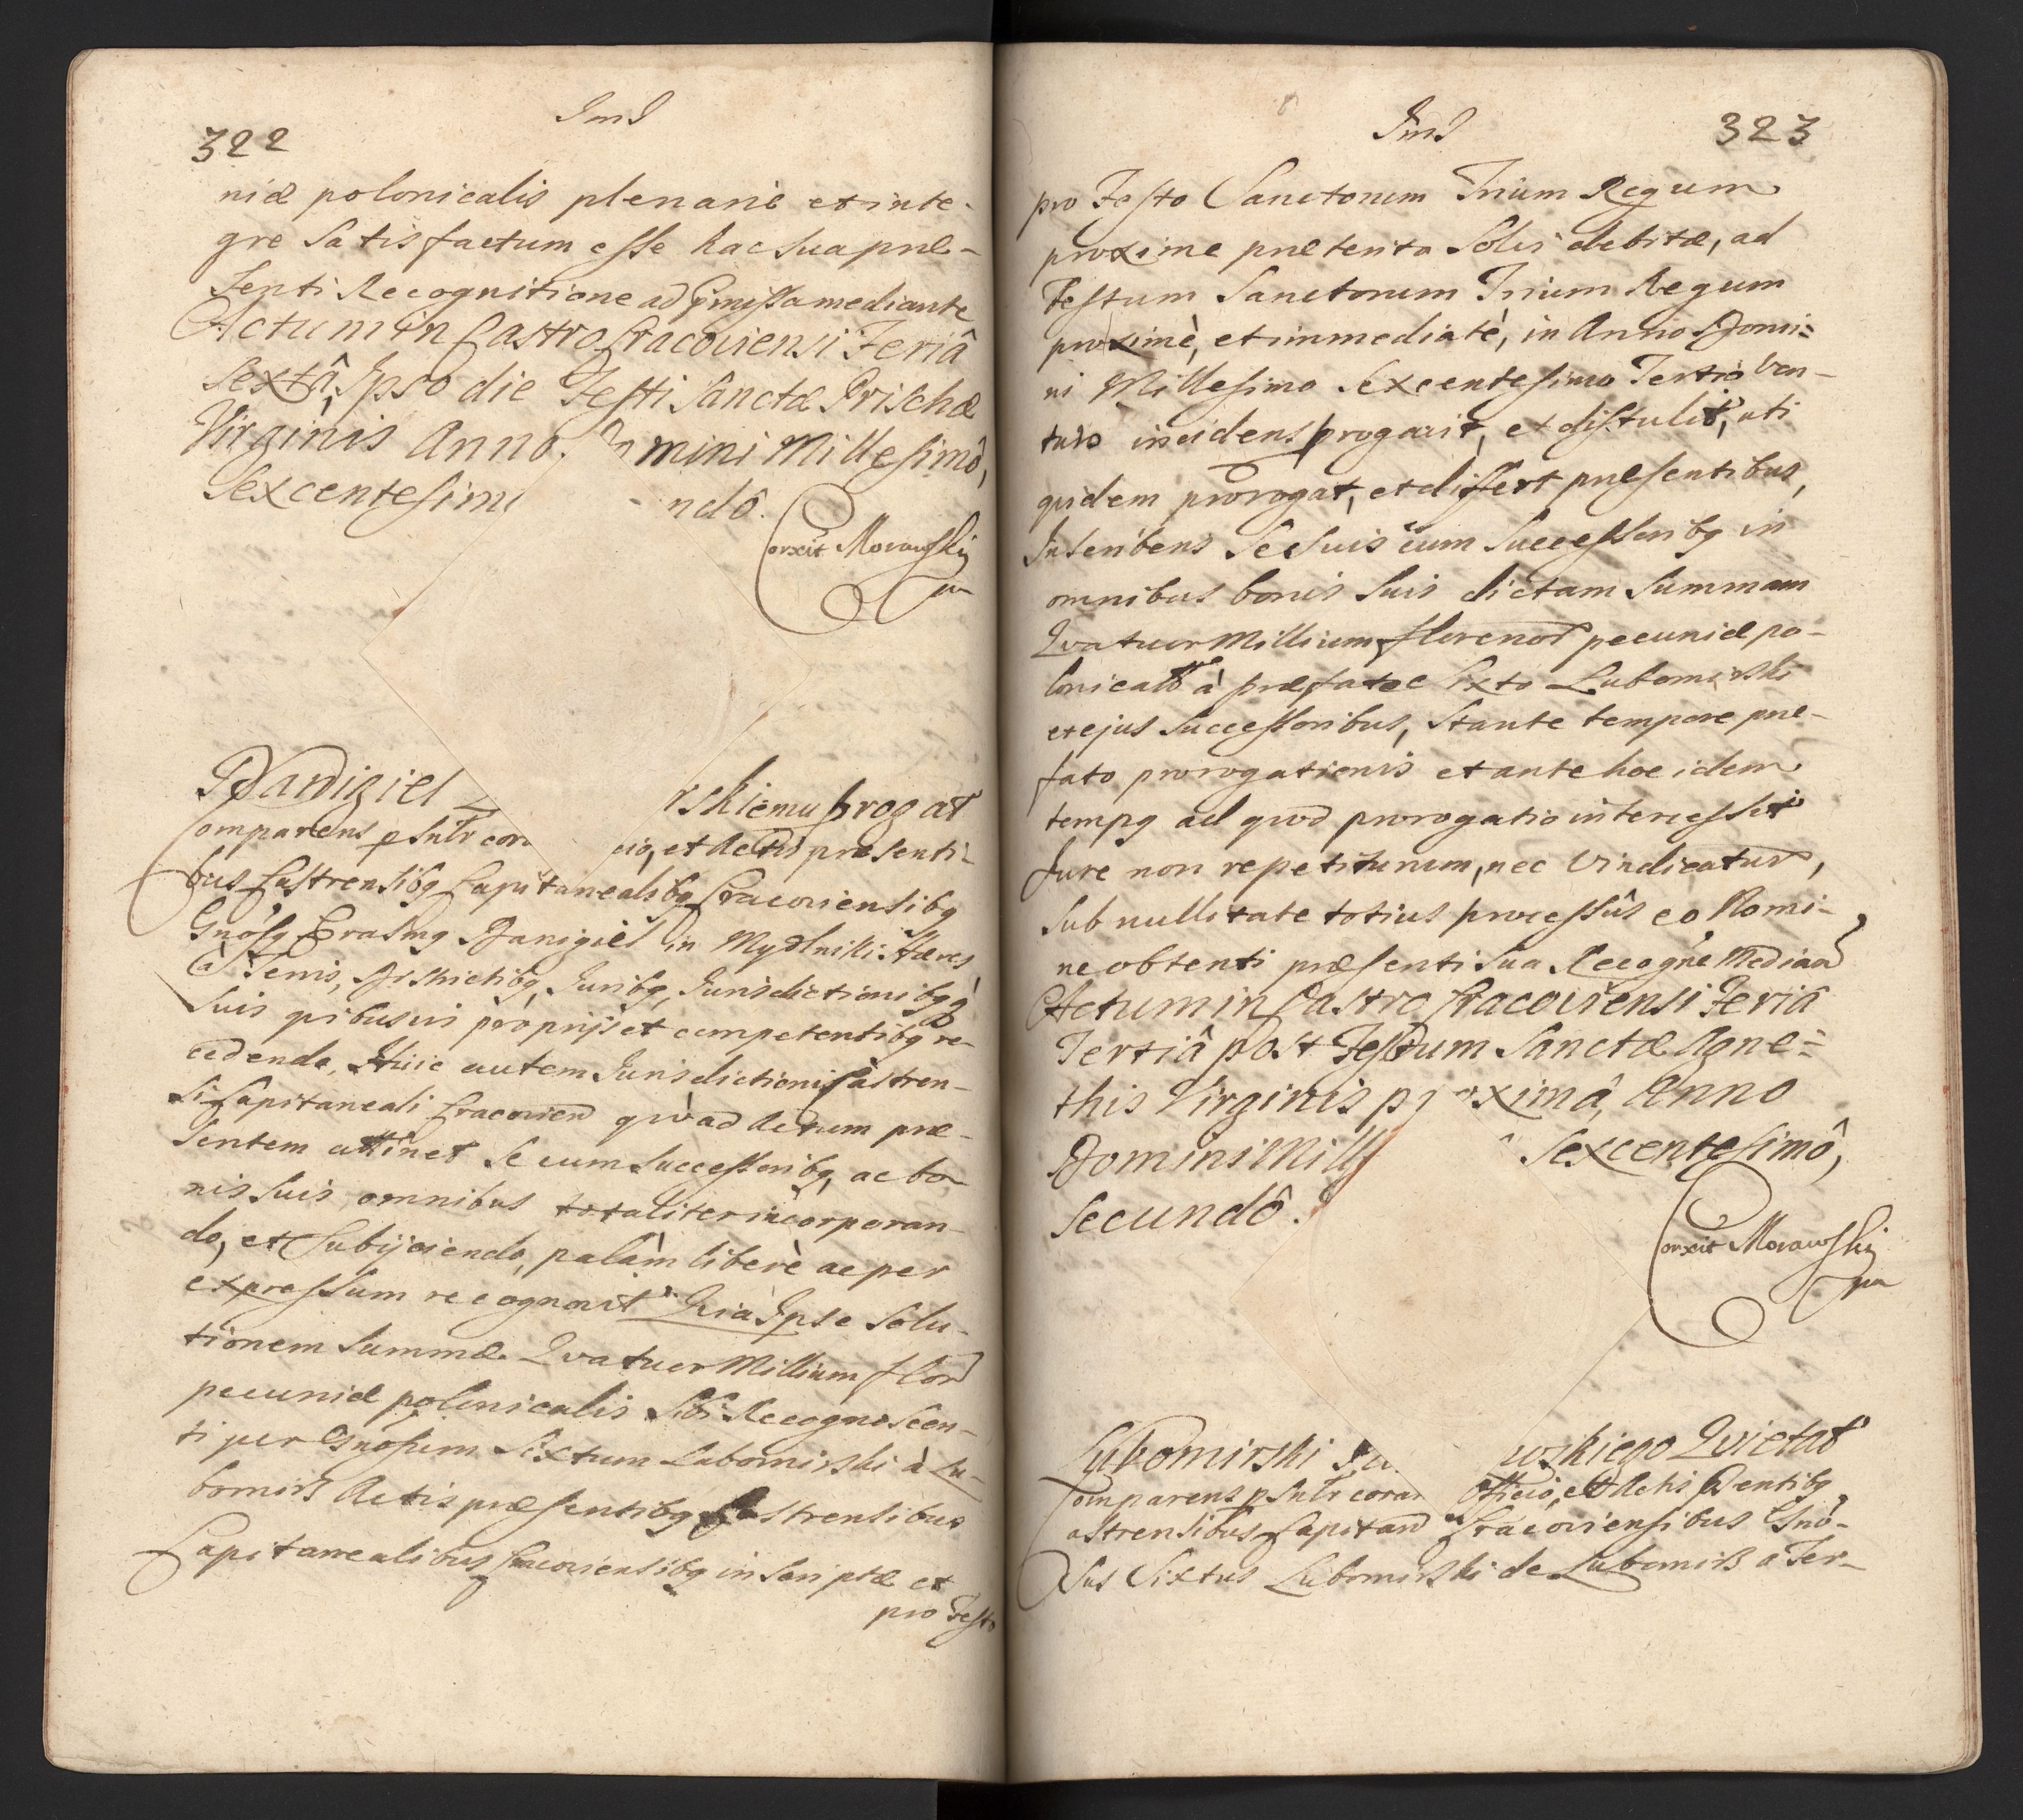 322
niæ polonicalis plenariè et inte-
gre Satisfactum esse hac Sua præ-
Senti Recognitione ad præmissa mediante
Actum in Castro Cracoviensi Feriâ
Sextâ, Ipso die Festi Sanctæ Prischæ
Virginis Anno mini Millesimô,
Sexcentesim ndô.
Correxit Morawski
mp
Danigiel rskiemu progat
Comparens psnlr cora cio, et Actis præsenti-
bus Castrensibq Capitanealibq Cracoviensibq
Gnosq Erasmq Danigiel in Mydlniki Hæres
à Terris, Districtibq, Juribq, Jurisdictionibqq
Suis quibusvis proprijs et competentibq re-
cedendo, Huic autem Jurisdictioni Castren-
Si Capitaneali Cracovien quò ad Actum præ-
Sentem attinet Se cum Successoribq, ac bo-
nis Suis omnibus totaliter incorporan-
do, et Subijciendo, palàm liberè ac per
expressum recognovit Quia Ipse Solu-
tionem Summæ Quatuor Millium flor
pecuniæ polonicalis Sibi Recognoscen-
ti per Gnosum Sixtum Lubomirski à Lu-
bomirz Actis præsentibq Castrensibus
Capitanealibus Cracoviensibq inscriptæ et
pro Festo
323
pro Festo Sanctorum Trium Regum
proxime præterito Solvi debitæ, ad
Festum Sanctorum Trium Regum
proximè, et immediatè, in Anno Domi-
ni Millesimo Sexcentesimo Tertio ven-
turo incidens progavit, et distulit, uti
quidem prorogat, et differt præsentibus,
Inscribens Se Suis cum Successoribq in
omnibus bonis Suis dictam Summam
Quatuor Millium florenor pecuniæ po-
lonical à præfato Sixto Lubomirski
et ejus Successoribus, Stante tempore præ-
fato prorogationis et ante hoc idem
tempq ad quod prorogatio intercessit
Jure non repetiturum, nec vindicatur,
Sub nullitate totius processûs eo Nomi-
ne obtenti præsenti Sua Recogne Median
Actum in Castro Cracoviensi Feriâ
Tertiâ post Festum Sanctæ Agne-
this Virginis proximâ, Anno
Domini Mill Sexcentesimô,
Secundô.
Correxit Morawski
mp
Lubomirski wskiego Quietat
Comparens psnlr coram Officio, et Actis psentibq
Castrensibus Capitan Cracoviensibus Gno-
Sus Sixtus Lubomirski de Lubomirz a Ter-